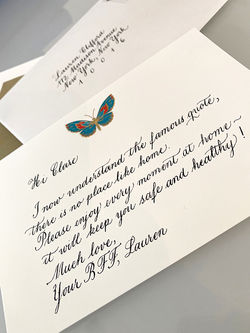 Lauren Clifford
212 Madison Avenue
New York, New York
10016
Hi Clare
I now understand the famous quote,
there is no place like home.
Please enjoy every moment at home ~
it will keep you safe and healthy!
Much love,
Your BFF, Lauren